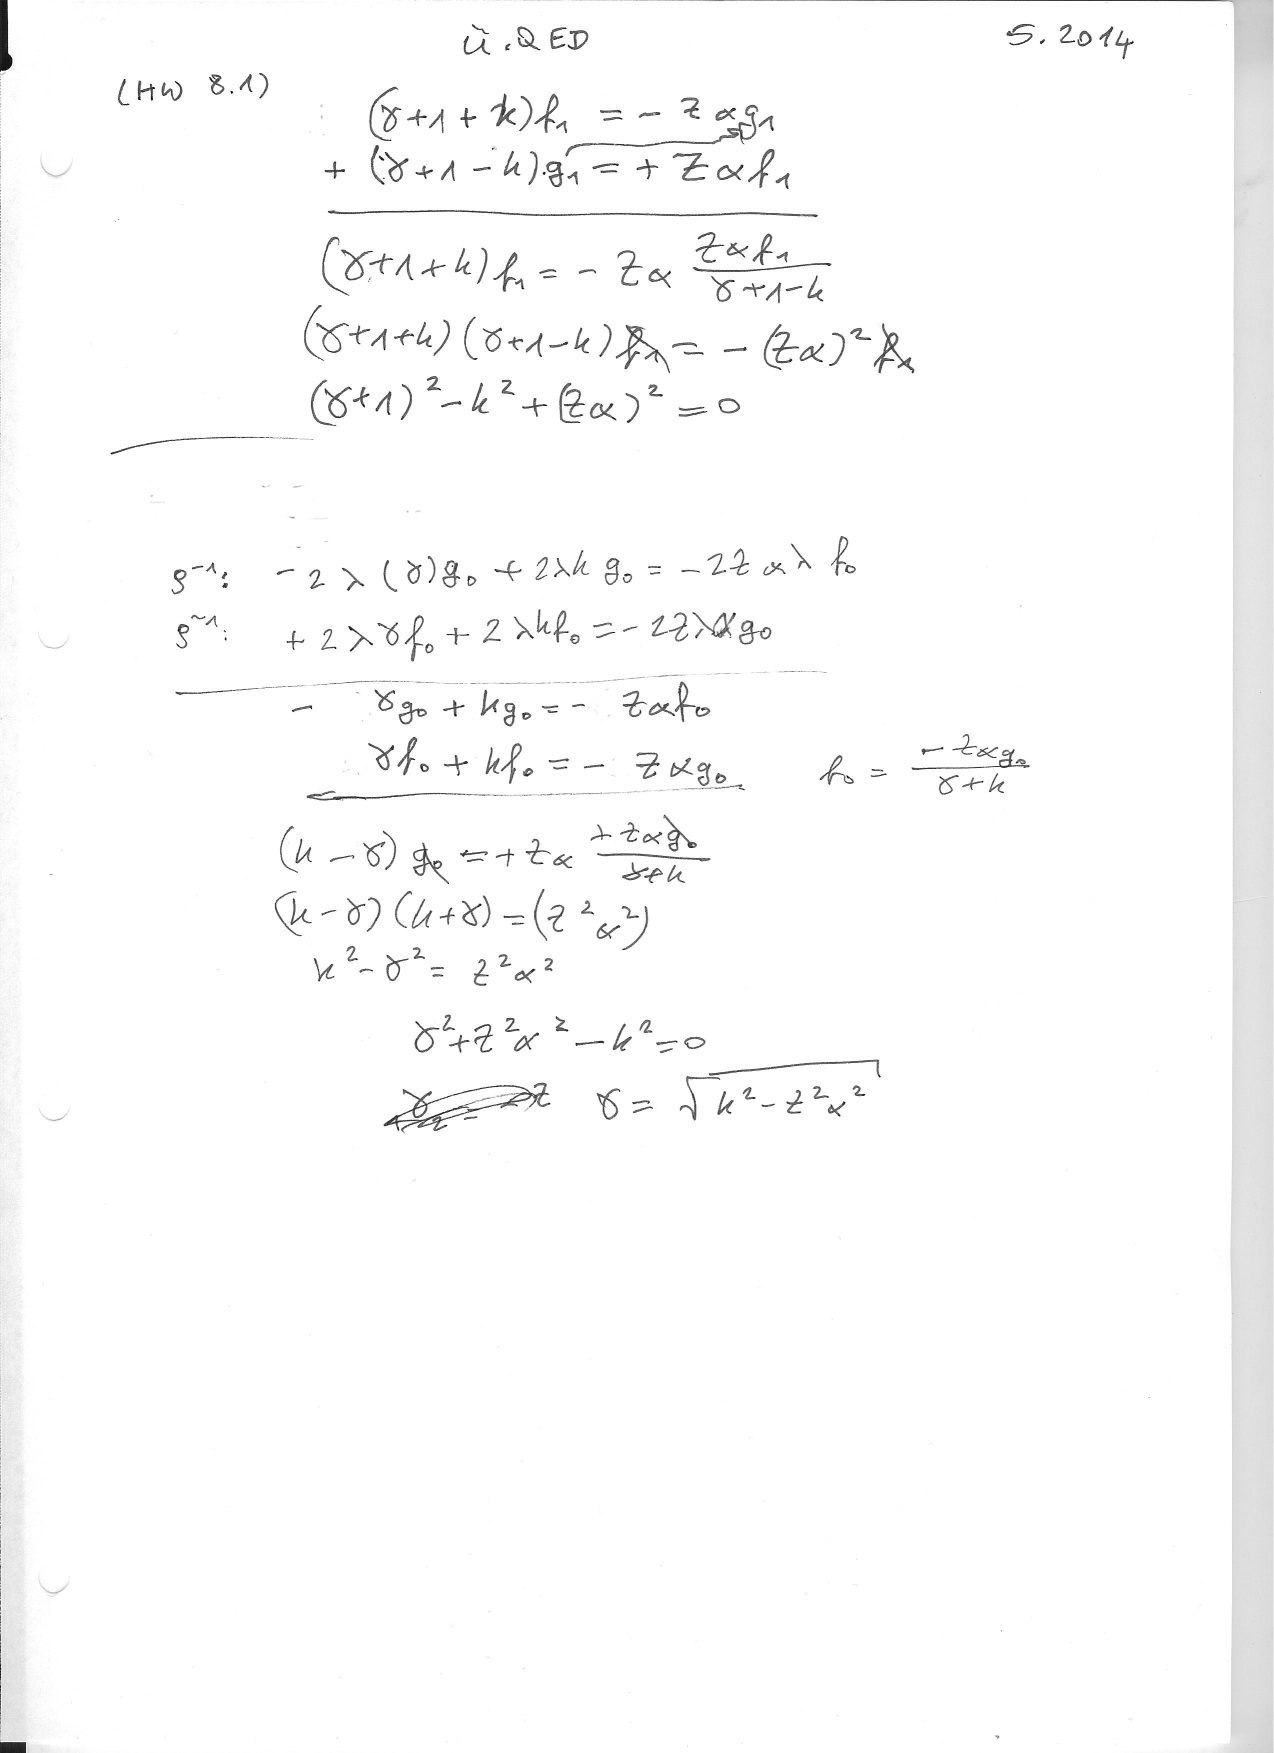 ü. QED 5.2014
(HW 8.1)
(γ+1+k)f₁ = - Zαg₁
+ (γ+1-k)·g₁ = + Zαf₁
(γ+1+k)f₁ = - Zα Zαf₁/(γ+1-k)
(γ+1+k)(γ+1-k)f₁ = - (Zα)² f₁
(γ+1)² - k² + (Zα)² = 0
ρ⁻¹: -2λ(γ)g₀ + 2λk g₀ = -2Zαλ f₀
ρ⁻¹: +2λγf₀ + 2λkf₀ = -2Zλαg₀
- γg₀ + kg₀ = - Zαf₀
γf₀ + kf₀ = - Zαg₀ f₀ = -Zαg₀/(γ+k)
(k-γ)g₀ = +Zα +Zαg₀/(γ+k)
(k-γ)(k+γ) = (Z²α²)
k²-γ² = Z²α²
γ²+Z²α²-k²=0
γ = √(k²-Z²α²)